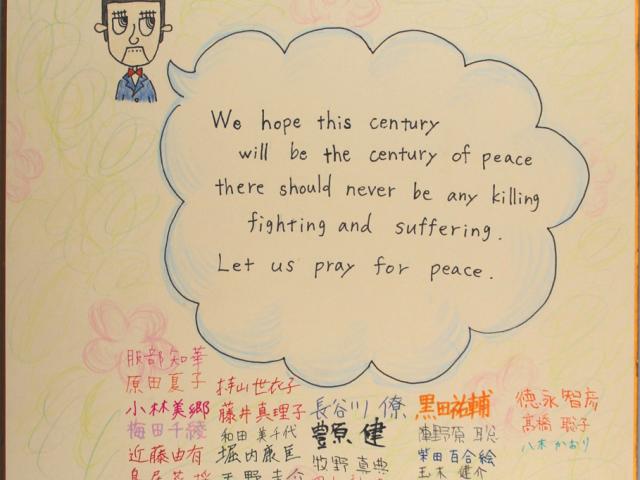 We hope this century
will be the century of peace
there should never be any killing
fighting and suffering.
Let us pray for peace.
服部知華
原田夏子
小林美郷
梅田千綾
近藤由有
持山世衣子
藤井真理子
和田美千代
堀内康匡
長谷川 僚
豊原 健
牧野真典
黒田祐輔
柴田百合絵
玉木 健介
徳永智彦
高橋 聡子
八木かおり